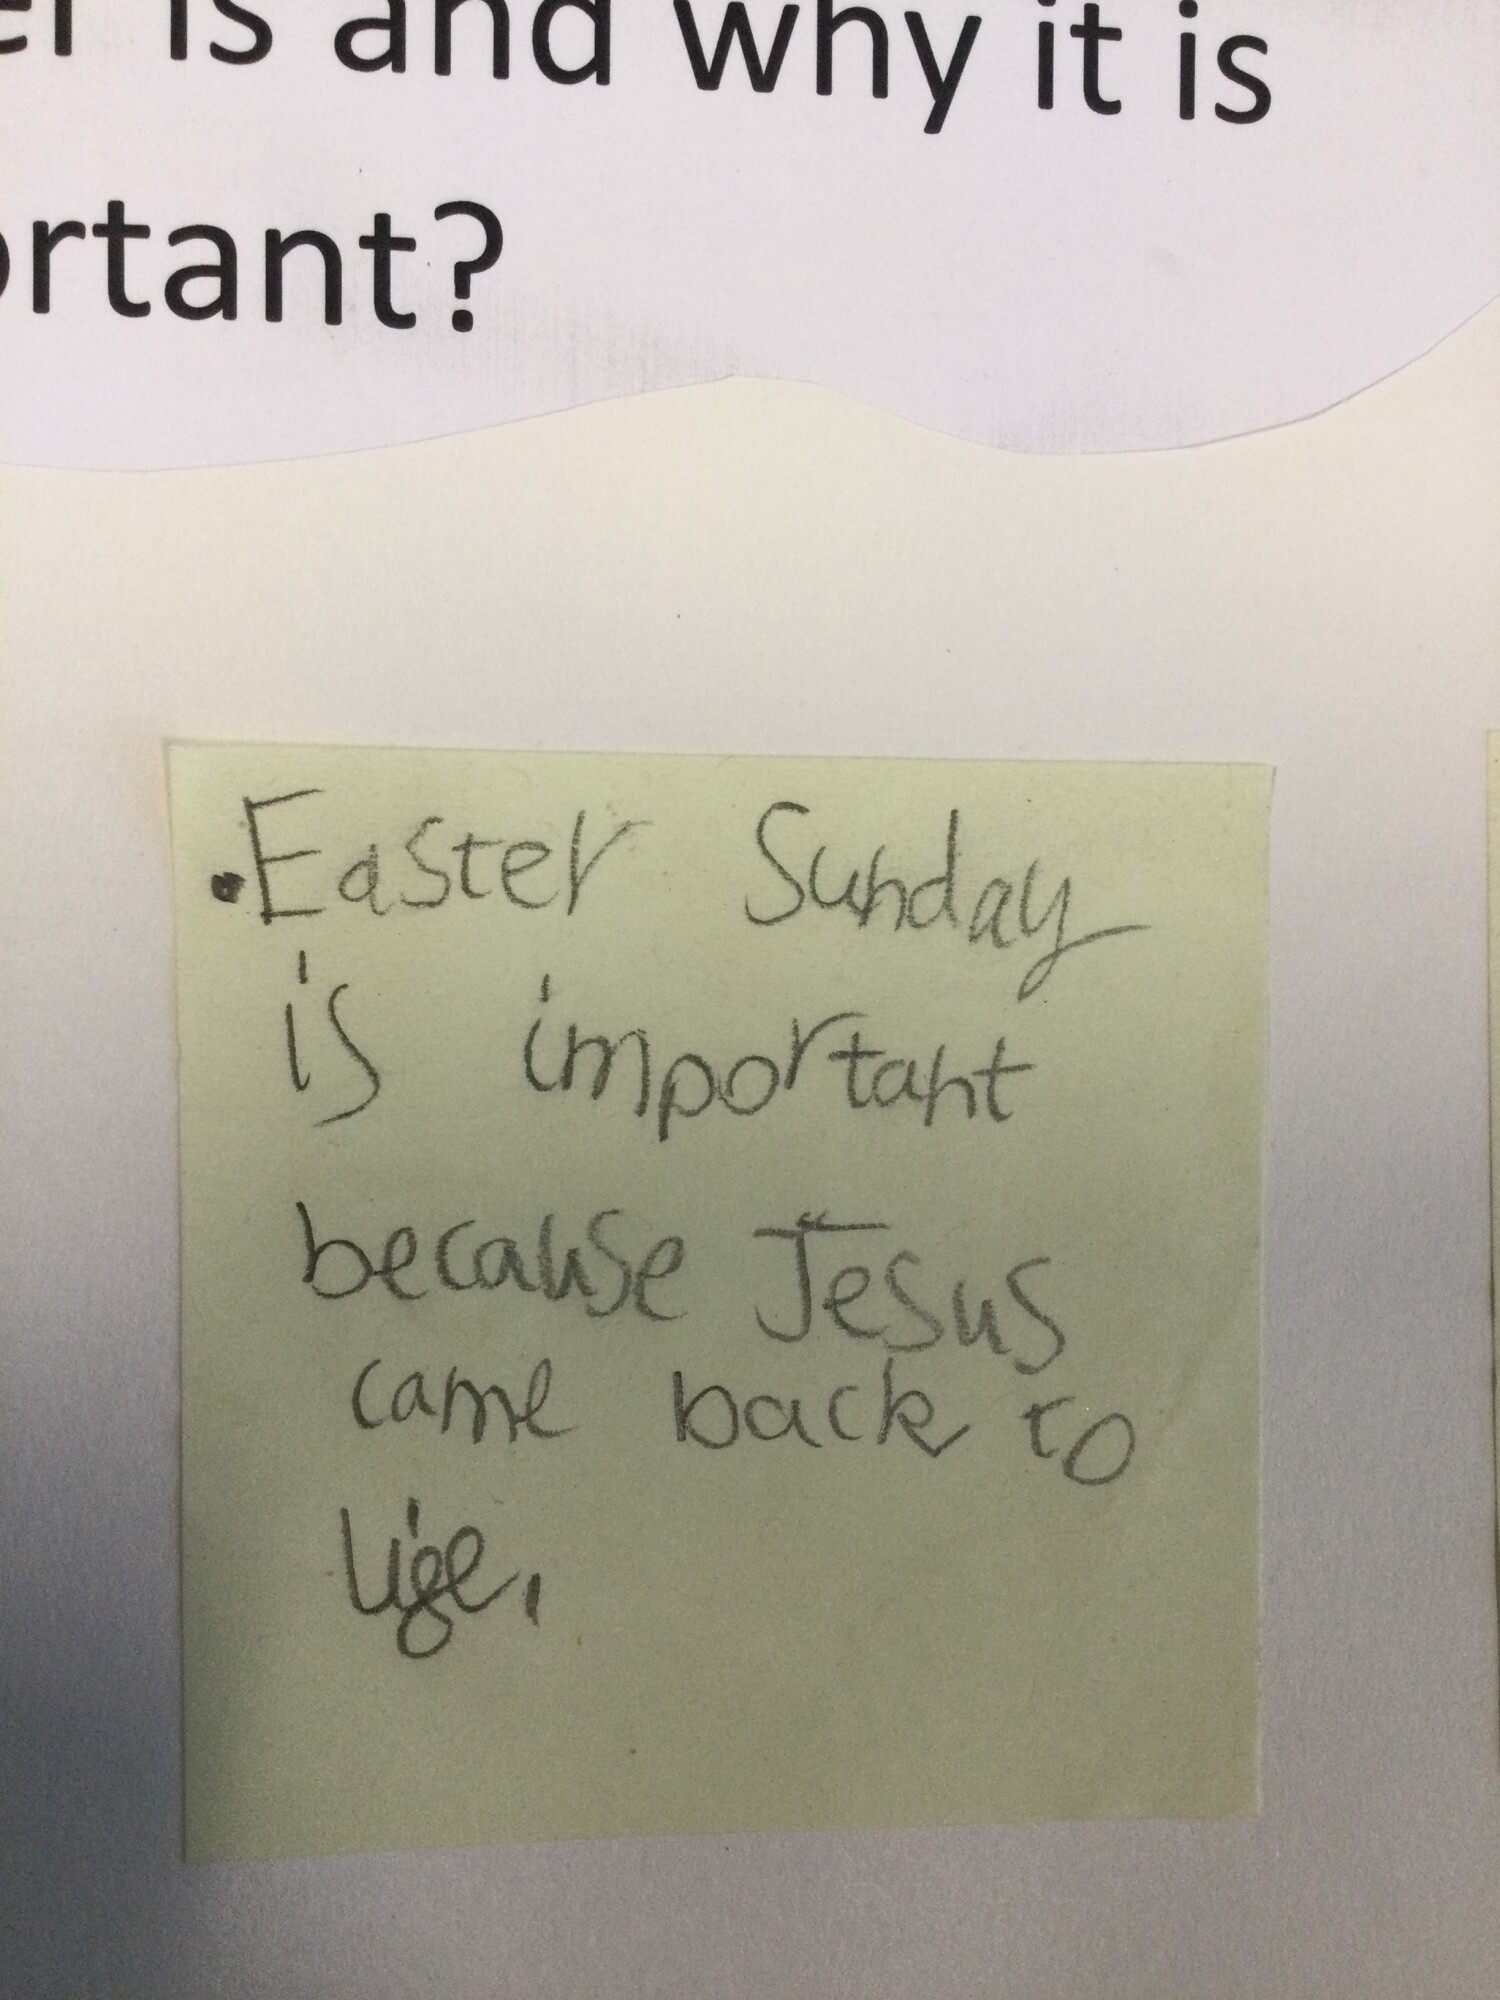 er is and why it is
ortant?
• Easter Sunday
is important
because Jesus
came back to
life.